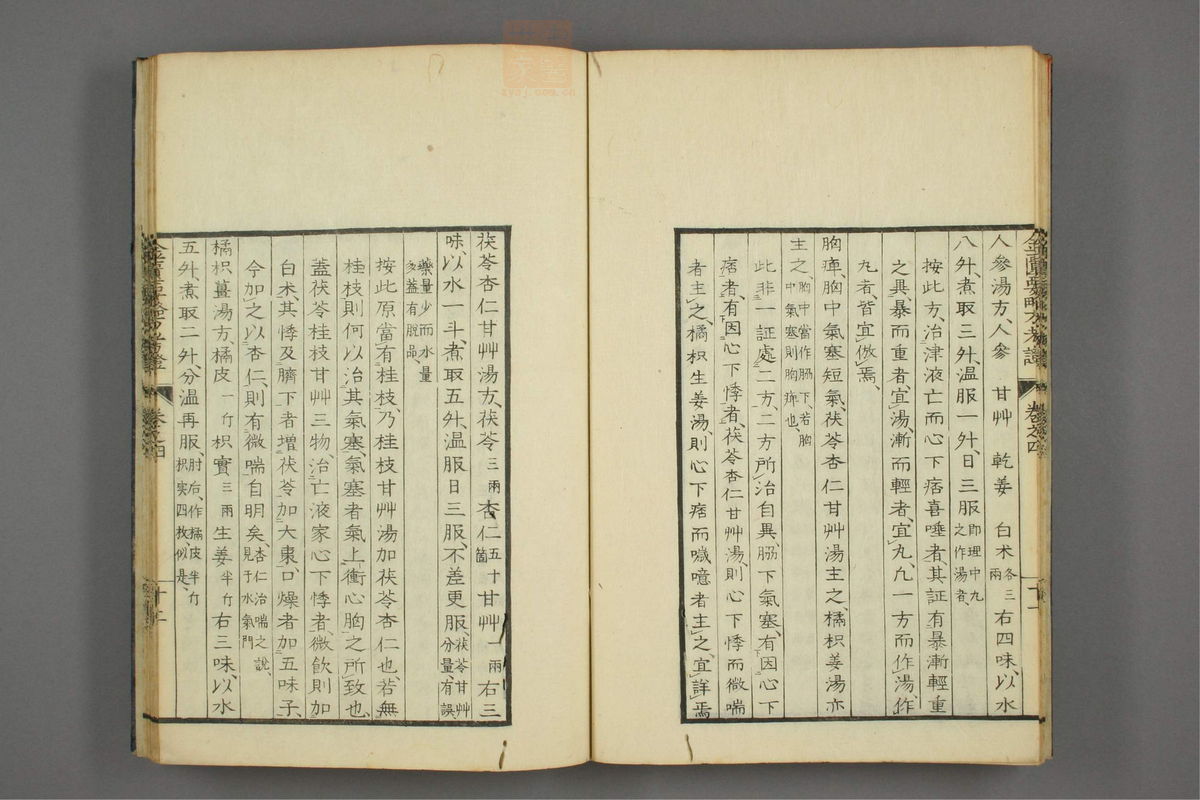 人參湯方、人參 甘艸 乾姜 白朮各三兩右四味、以水
八升、煮取三升、溫服一升、日三服即理中丸之作湯者、
按此方、治津液亡而心下痞喜唾者、其証有暴漸輕重
之異、暴而重者宜湯、漸而輕者、宜丸、凡一方而作湯、作
丸者、皆宜倣焉、
胸痺、胸中氣塞短氣、茯苓杏仁甘艸湯主之、橘枳姜湯亦
主之、胸中當作胸下、若胸中氣塞則胸痺也、
此非一証處二方、二方所治自異、胸下氣塞、有因心下
痞者、有因心下悸者、茯苓杏仁甘艸湯、則心下悸而微喘
者主之、橘枳生姜湯、則心下痞而噦噫者主之、宜詳焉
茯苓杏仁甘艸湯方、茯苓三兩杏仁五十箇甘艸一兩右三
味、以水一斗、煮取五升、溫服日三服、不差更服、茯苓甘艸分量、有誤
藥量少而水量多蓋有脫品、
按此原當有桂枝、乃桂枝甘艸湯加茯苓杏仁也、若無
桂枝則何以治其氣塞、氣塞者氣上衝心胸之所致也、
蓋茯苓桂枝甘艸三物、治亡液家心下悸者、微飲則加
白朮、其悸及臍下者增茯苓加大棗、口燥者加五味子、
今加之以杏仁、則有微喘自明矣、杏仁治喘之說、見于水氣門
橘枳薑湯方、橘皮一斤枳實三兩生姜半斤右三味、以水
五升、煮取二升、分溫再服、肘后、作橘皮半斤枳実四枚、似是、
卷之四
卷之四